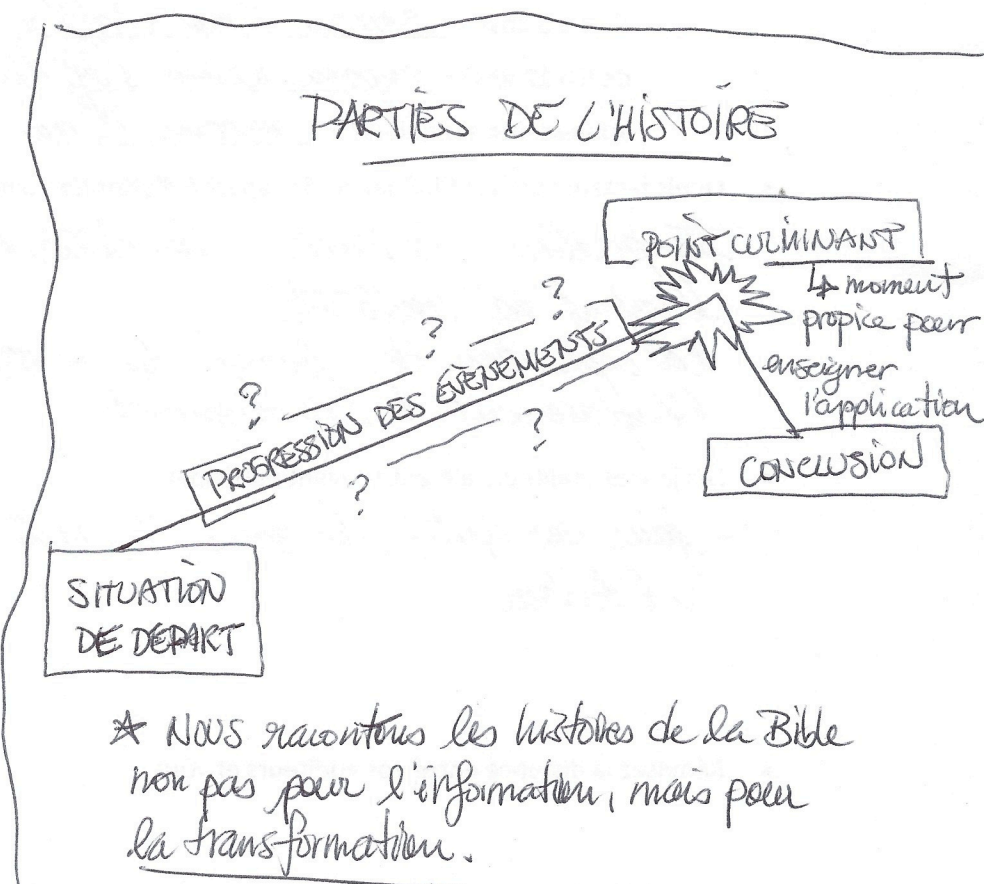 PARTIES DE L'HISTOIRE
POINT CULMINANT
↳ moment
propice pour
enseigner
l'application
?
?
?
PROGRESSION DES ÉVÈNEMENTS
?
?
CONCLUSION
SITUATION
DE DEPART
* NOUS racontons les histoires de la Bible
non pas pour l'information, mais pour
la transformation.